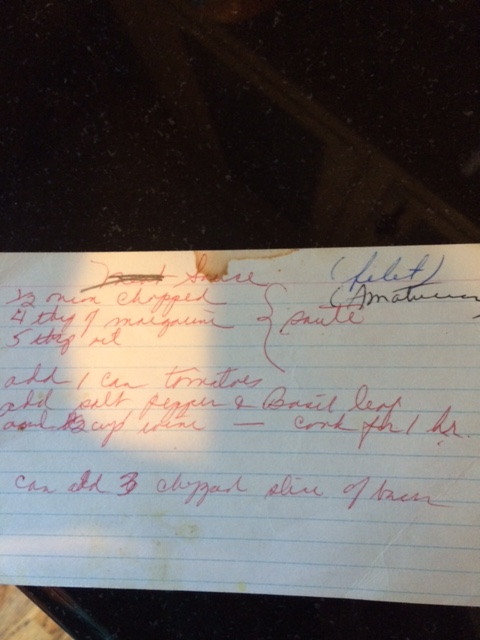 Sauce (filet)
1/2 onion chopped
4 tbsp of margarine } saute
5 tbsp oil
add 1 can tomatoes
add salt pepper & Basil leaf
add 1/2 cup wine — cook for 1 hr.
can add 3 chopped slice of bacon